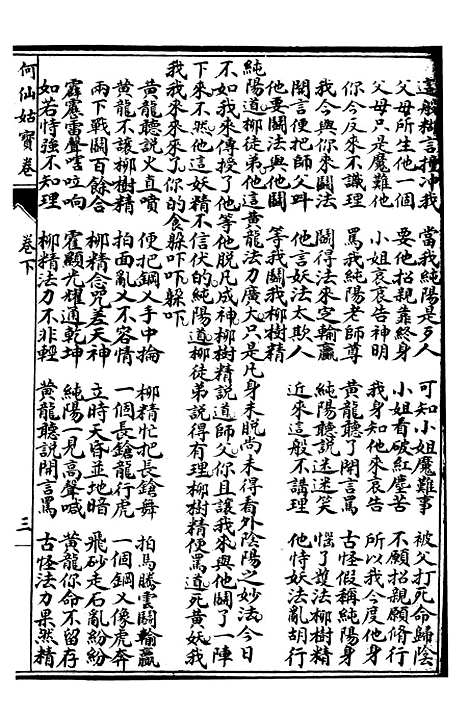 這般樹言撞冲我　當我純陽是歹人　可知小姐魔難事　被父打死命歸陰
父母所生他一個　要他招親靠終身　小姐看破紅塵苦　不願招親願脩行
父母只是魔難他　小姐哀哀告神明　我身知他來哀告　所以我今度他身
你今反來不識理　罵我純陽老師尊　黄龍聽了開言罵　古怪假稱純陽身
我今與你來鬪法　鬪得法來定輸贏　純陽聽說迷迷笑　惱了護法柳樹精
開言便把師父呌　他言妖法太欺人　近來這般不講理　他恃妖法亂胡行
他要鬪法與他鬪　等我鬪我柳樹精
純陽道柳徒弟他這黄龍法力廣大只是凡身未脫尚未得看外陰陽之妙法今日
不如我來傳授了他等他脫凡成神柳樹精説道師父你且讓我來與他鬪了一陣
下來不然他這妖精不信伏的純陽道柳徒弟説得有理柳樹精便罵道死黄妖我
我我來來來了你的食躲吓吓躲吓
黄龍聽説火直噴　便把鋼乂手中掄　柳精忙把長鎗舞　拍馬騰雲鬪輸贏
黄龍不讓柳樹精　拍面亂乂不容情　一個長鎗龍行虎　一個鋼乂像虎奔
兩下戰鬪百餘合　柳精念咒差天神　立時天昏並地暗　飛砂走石亂紛紛
霹靂雷聲㗇咗响　霍顯光耀通乾坤　純陽一見高聲喊　黄龍你命不留存
如若恃強不知理　柳精法力不非輕　黄龍聽説開言罵　古怪法力果然精
何仙姑寶卷
卷下
三